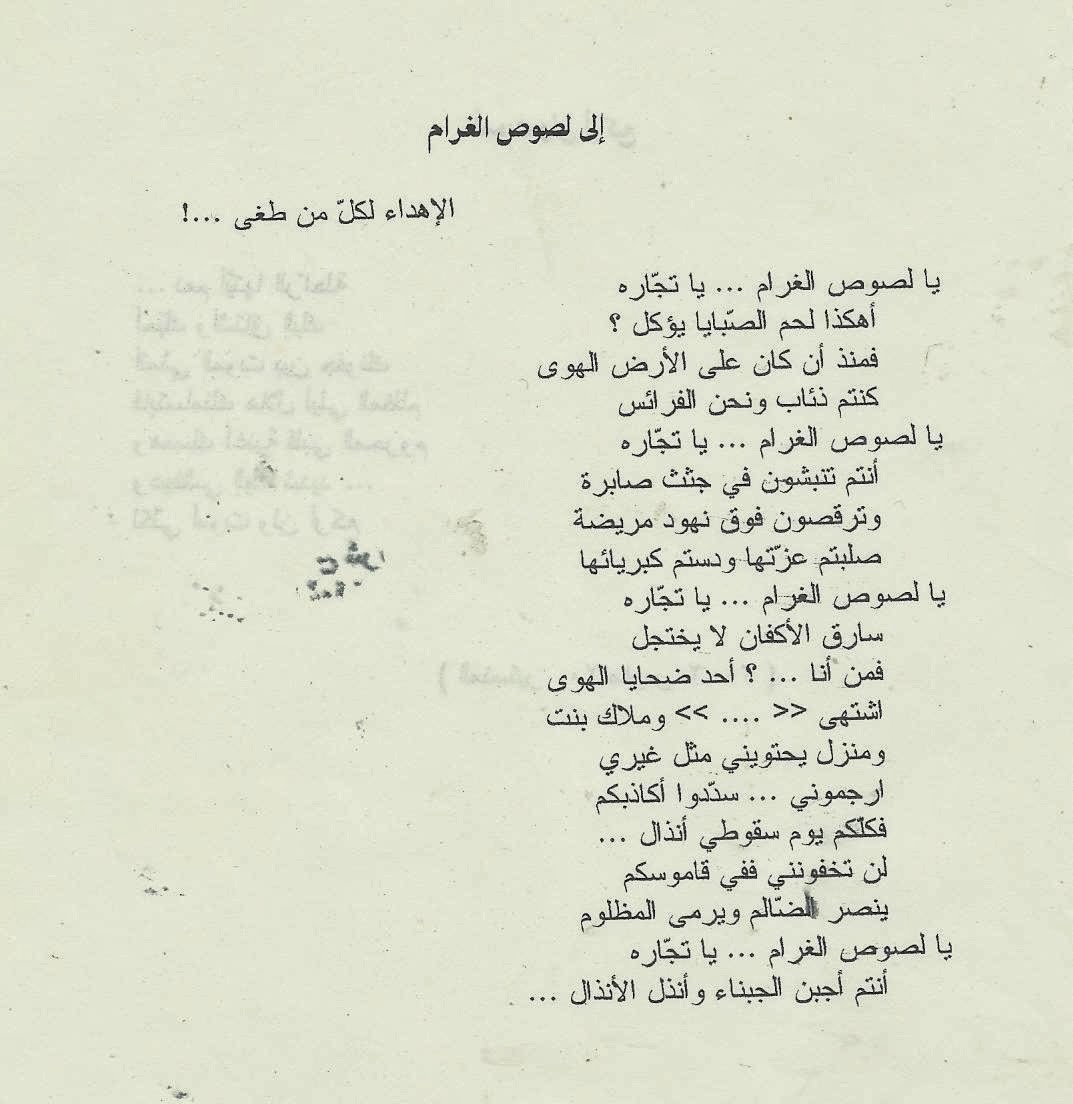 إلى لصوص الغرام
الإهداء لكلّ من طغى ...!
يا لصوص الغرام ... يا تجّاره
أهكذا لحم الصّبايا يؤكل ؟
فمنذ أن كان على الأرض الهوى
كنتم ذئاب ونحن الفرائس
يا لصوص الغرام ... يا تجّاره
أنتم تنبشون في جثث صابرة
وترقصون فوق نهود مريضة
صلبتم عزّتها ودستم كبريائها
يا لصوص الغرام ... يا تجّاره
سارق الأكفان لا يختجل
فمن أنا ... ؟ أحد ضحايا الهوى
اشتهى << .... >> وملاك بنت
ومنزل يحتويني مثل غيري
ارجموني ... سدّدوا أكاذبكم
فكلّكم يوم سقوطي أنذال ...
لن تخفونني ففي قاموسكم
ينصر الضّالم ويرمى المظلوم
يا لصوص الغرام ... يا تجّاره
أنتم أجبن الجبناء وأنذل الأنذال ...